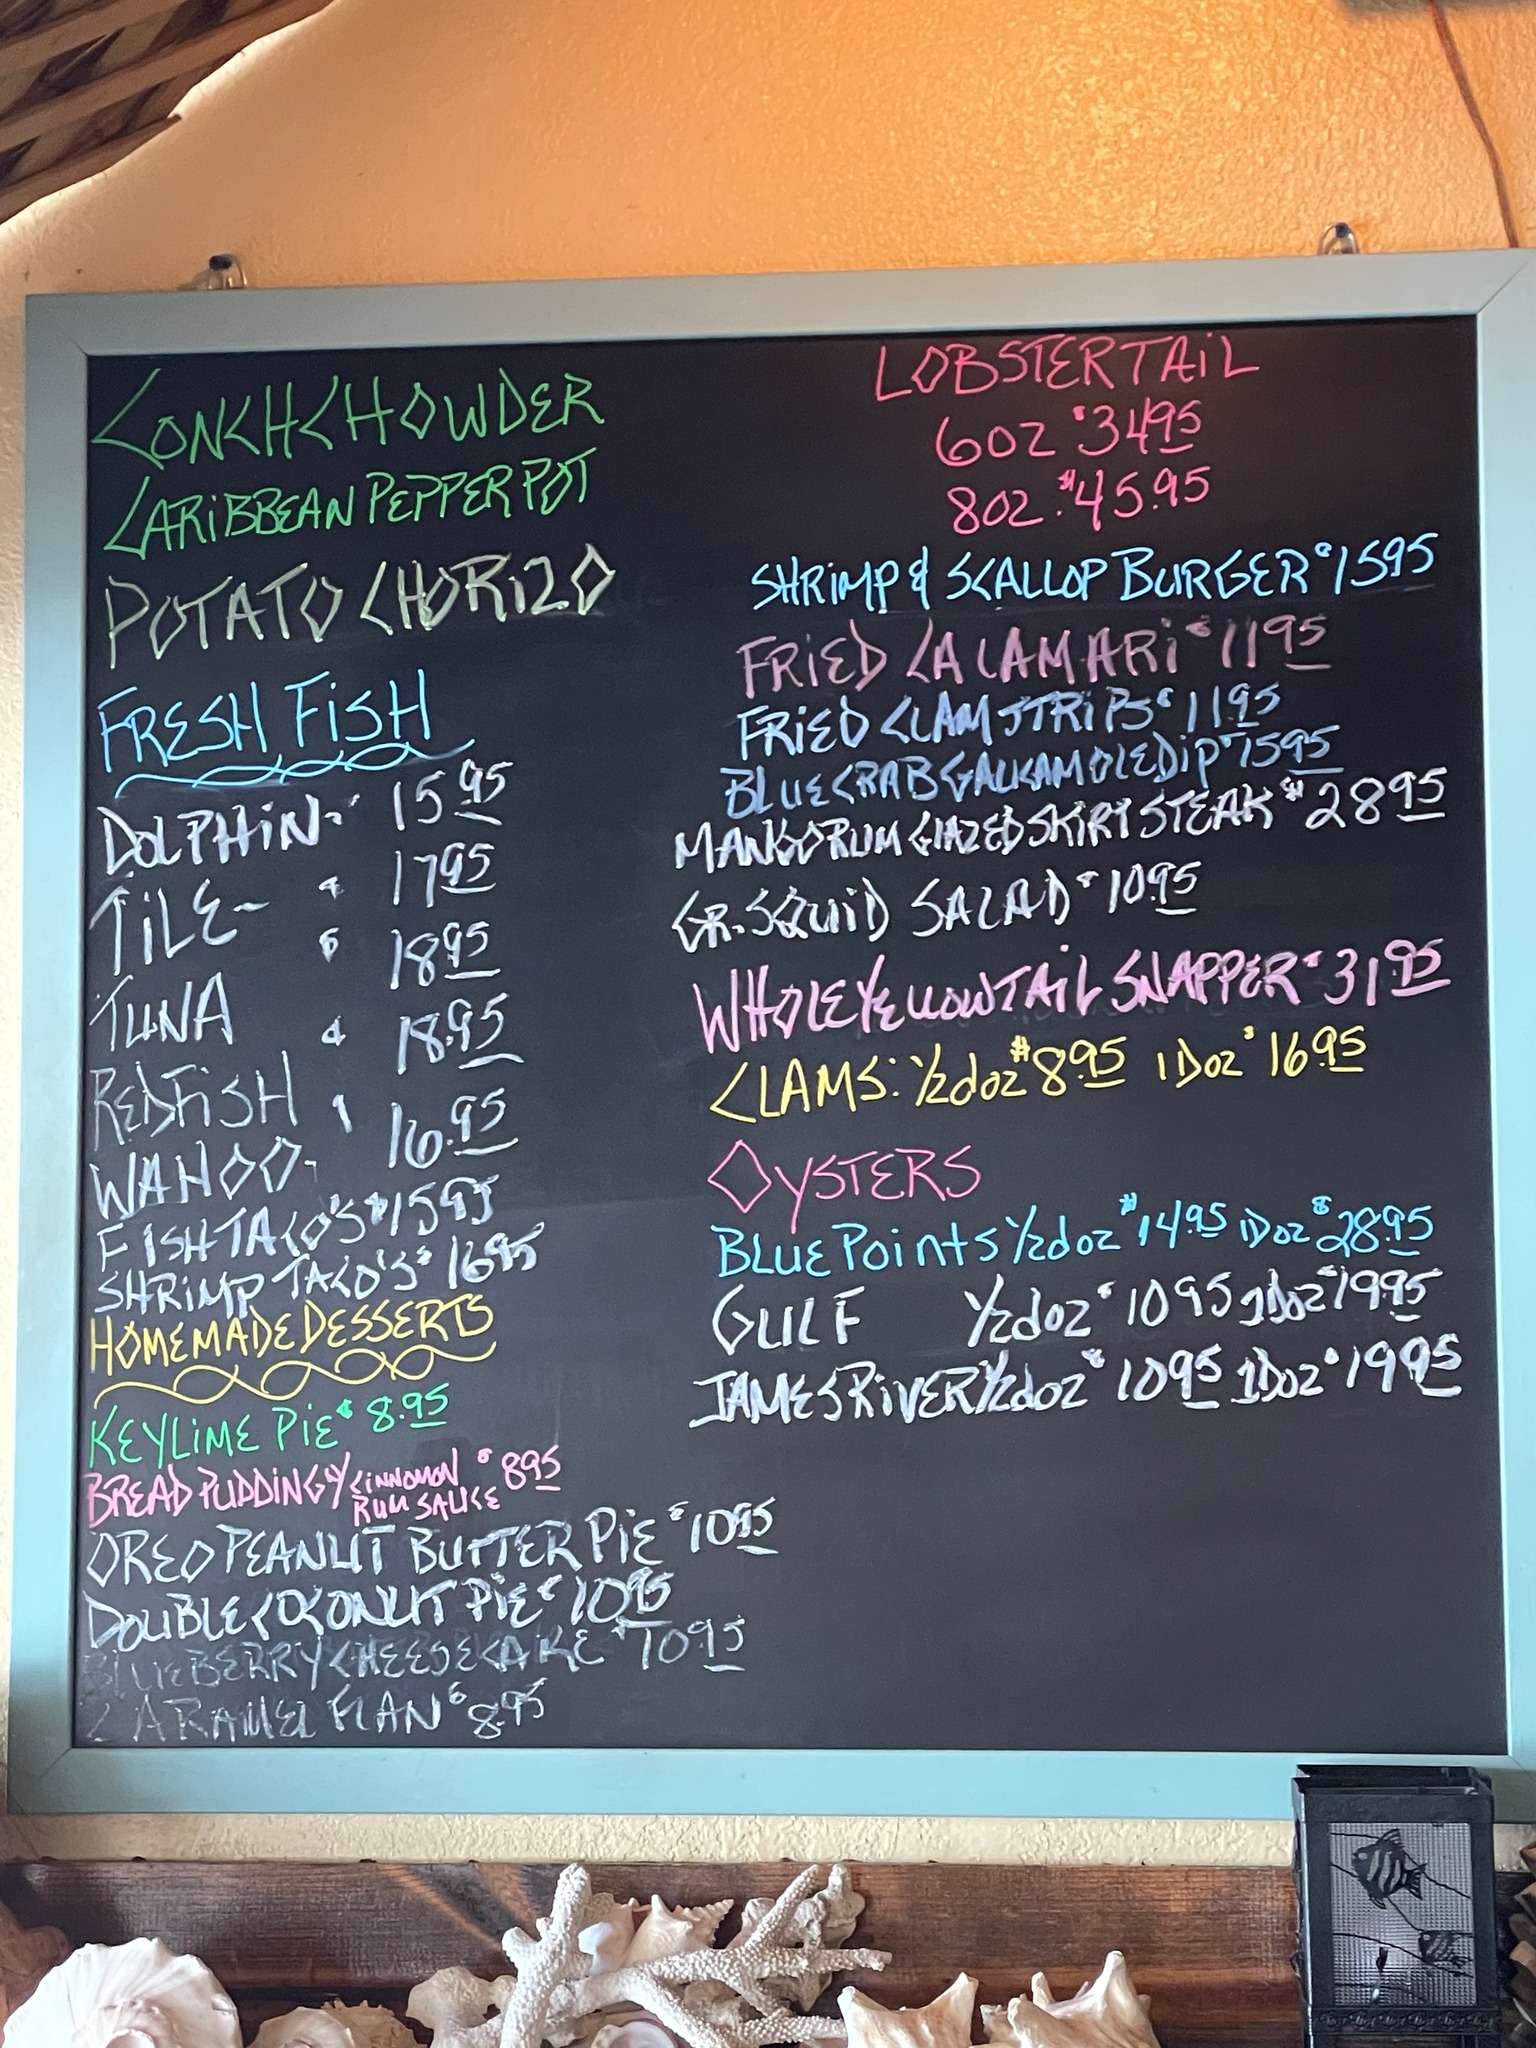 CONCH CHOWDER
CARIBBEAN PEPPER POT
POTATO CHORIZO
FRESH FISH
DOLPHIN - $ 15.95
TILE - $ 17.95
TUNA $ 18.95
REDFISH $ 18.95
WAHOO - $ 16.95
FISH TACO'S $15.95
SHRIMP TACO'S $16.95
HOMEMADE DESSERTS
KEYLIME PIE $8.95
BREAD PUDDING W/ CINNOMON RUM SAUCE $8.95
OREO PEANUT BUTTER PIE $10.95
DOUBLE COCONUT PIE $10.95
BLUEBERRY CHEESECAKE $10.95
CARAMEL FLAN $8.95
LOBSTER TAIL
6OZ $34.95
8OZ. $45.95
SHRIMP & SCALLOP BURGER $15.95
FRIED CALAMARI $11.95
FRIED CLAM STRIPS $11.95
BLUE CRAB GAUCAMOLE DIP $15.95
MANGO RUM GLAZED SKIRT STEAK $28.95
GR. SQUID SALAD $10.95
WHOLE YELLOWTAIL SNAPPER $31.95
CLAMS: 1/2 doz $8.95 1 Doz $16.95
OYSTERS
BLUE POINTS 1/2 doz $14.95 1 Doz $28.95
GULF 1/2 doz $10.95 1 Doz $19.95
JAMES RIVER 1/2 doz $10.95 1 Doz $19.95